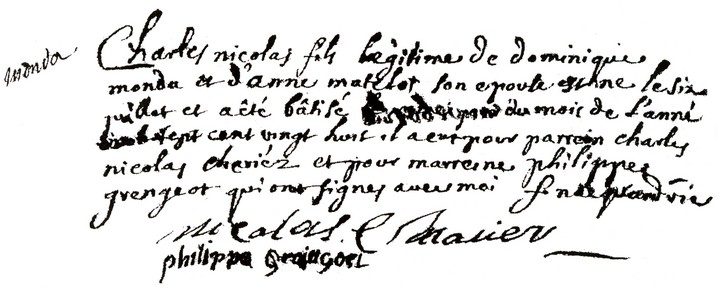 monda
Charles nicolas fils legitime de dominique
monda et d'anne matelot son epouse est ne le six
juillet et a êté bâtisé du mois de l'anné
sept cent vingt huit il a eut pour parrein charles
nicolas cheriéz et pour marreine philippe
grengeot qui ont signés avec moi
nicolas C masier
philippe Grajngoet